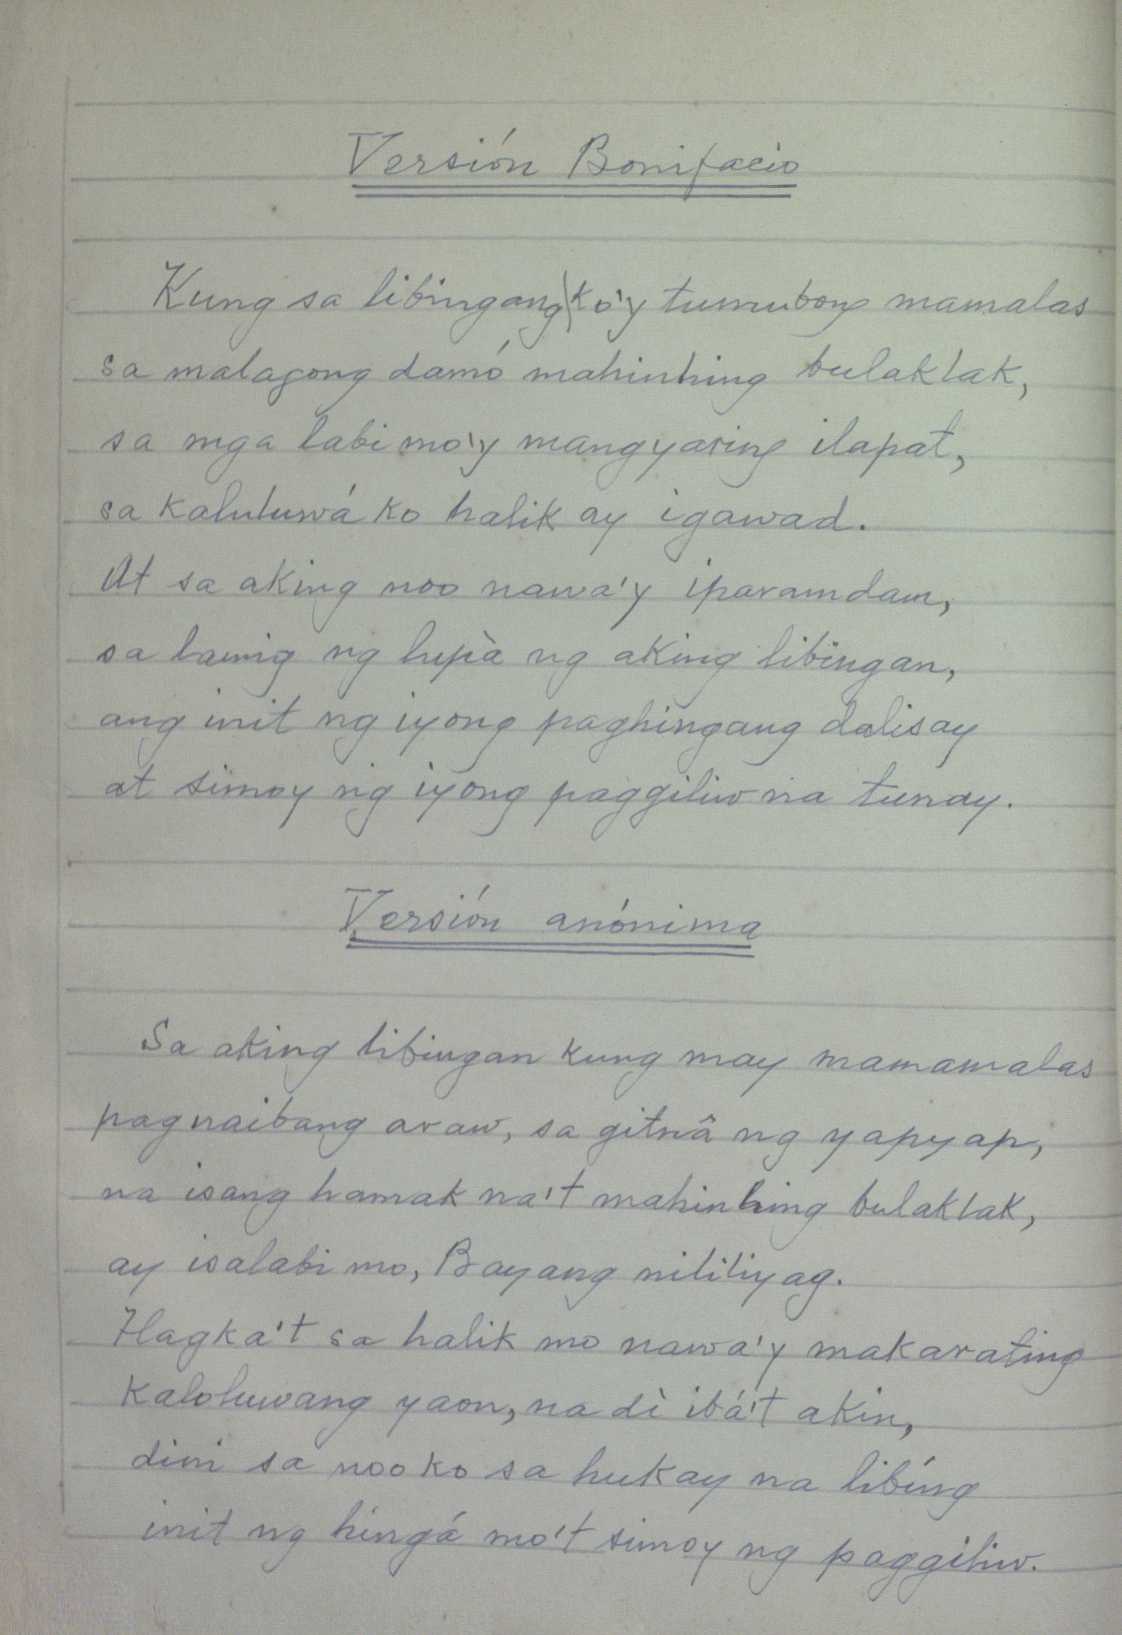 Versión Bonifacio
Kung sa libingang ko'y tumubong mamalas
sa malagong damó mahinhing bulaklak,
sa mga labi mo'y mangyaring ilapat,
sa kaluluwá ko halik ay igawad.
At sa aking noo nawa'y iparamdam,
sa lamig ng lupà ng aking libingan,
ang init ng iyong paghingang dalisay
at simoy ng iyong paggiliw na tunay.
Versión anónima
Sa aking libingan kung may mamamalas
pagnaibang araw, sa gitnâ ng yapyap,
na isang hamak na't mahinhing bulaklak,
ay isalabi mo, Bayang nililiyag.
Hagka't sa halik mo nawa'y makarating
kaloluwang yaon, na dì ibá't akin,
dini sa noo ko sa hukay na libíng
init ng hingá mo't simoy ng paggiliw.